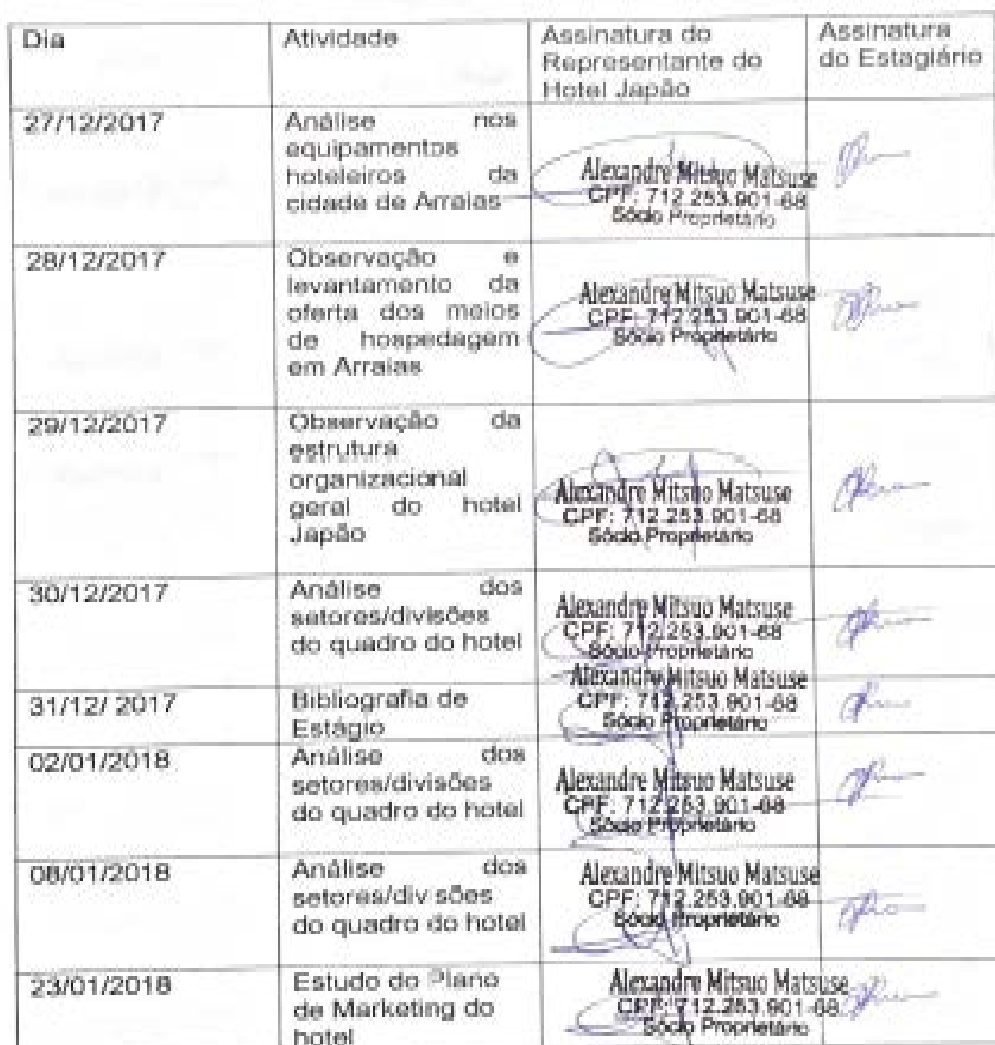 Dia
Atividade
Assinatura do
Representante do
Hotel Japão
Assinatura
do Estagiário
27/12/2017
Análise nos
equipamentos
hoteleiros da
cidade de Arraias
Alexandre Mitsuo Matsuse
CPF: 712.253.901-68
Sócio Proprietário
28/12/2017
Observação e
levantamento da
oferta dos meios
de hospedagem
em Arraias
Alexandre Mitsuo Matsuse
CPF: 712.253.901-68
Sócio Proprietário
29/12/2017
Observação da
estrutura
organizacional
geral do hotel
Japão
Alexandre Mitsuo Matsuse
CPF: 712.253.901-68
Sócio Proprietário
30/12/2017
Análise dos
setores/divisões
do quadro do hotel
Alexandre Mitsuo Matsuse
CPF: 712.253.901-68
Sócio Proprietário
31/12/ 2017
Bibliografia de
Estágio
Alexandre Mitsuo Matsuse
CPF: 712.253.901-68
Sócio Proprietário
02/01/2018
Análise dos
setores/divisões
do quadro do hotel
Alexandre Mitsuo Matsuse
CPF: 712.253.901-68
Sócio Proprietário
08/01/2018
Análise dos
setores/div sões
do quadro do hotel
Alexandre Mitsuo Matsuse
CPF: 712.253.901-68
Sócio Proprietário
23/01/2018
Estudo do Plano
de Marketing do
hotel
Alexandre Mitsuo Matsuse
CPF: 712.253.901-68
Sócio Proprietário